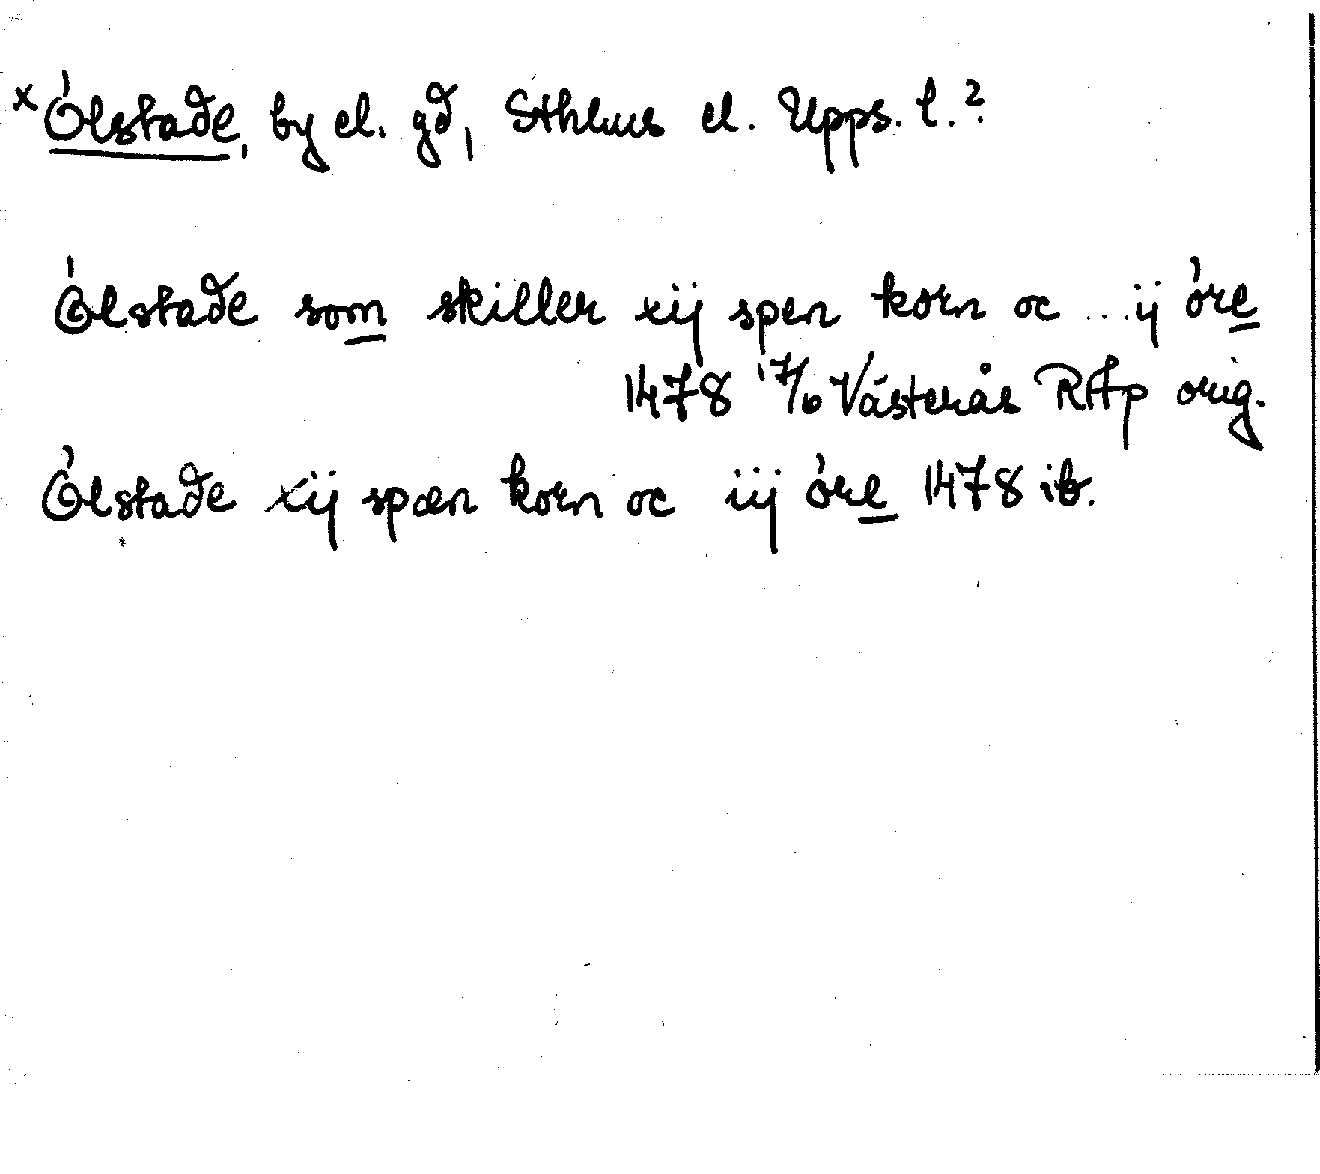 x Ölstade, by el. gd, Sthlms el. Upps. l.?
Ölstade som skiller xij spen korn oc ...ij öre
1478 17/6 Västerås RAp orig.
Ölstade xij spæn korn oc iij öre 1478 ib.